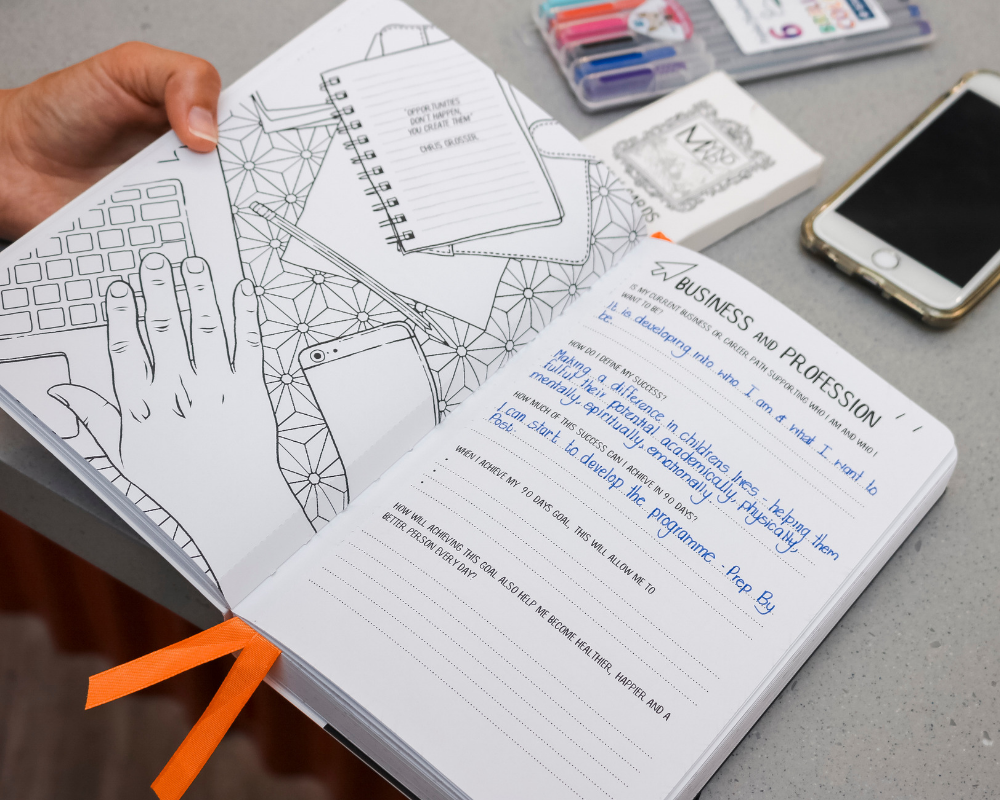 "OPPORTUNITIES
DON'T HAPPEN,
YOU CREATE THEM"
CHRIS GROSSER
MIND
MAP
BUSINESS AND PROFESSION
IS MY CURRENT BUSINESS OR CAREER PATH SUPPORTING WHO I AM AND WHO I
WANT TO BE?
It is developing into who I am & what I want to
be.
HOW DO I DEFINE MY SUCCESS?
Making a difference in childrens lives - helping them
fulful their potential academically, physically,
mentally, spiritually, emotionally.
HOW MUCH OF THIS SUCCESS CAN I ACHIEVE IN 90 DAYS?
I can start to develop the programme - Prep By
WHEN I ACHIEVE MY 90 DAYS GOAL, THIS WILL ALLOW ME TO
HOW WILL ACHIEVING THIS GOAL ALSO HELP ME BECOME HEALTHIER, HAPPIER AND A
BETTER PERSON EVERY DAY?